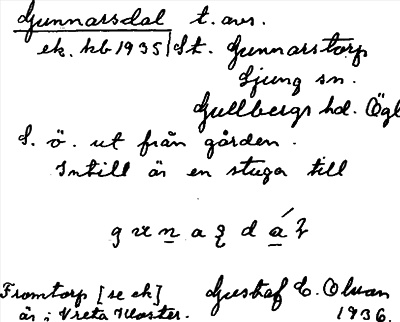 Gunnarsdal t. avs.
ek. kb 1935 | St. Gunnarstorp
Ljung sn.
Gullbergs hd. Ögl
S. ö. ut från gården.
Intill är en stuga till
Fromtorp [se ek]
är i Vreta Kloster.
Gustaf E. Olson
1936.